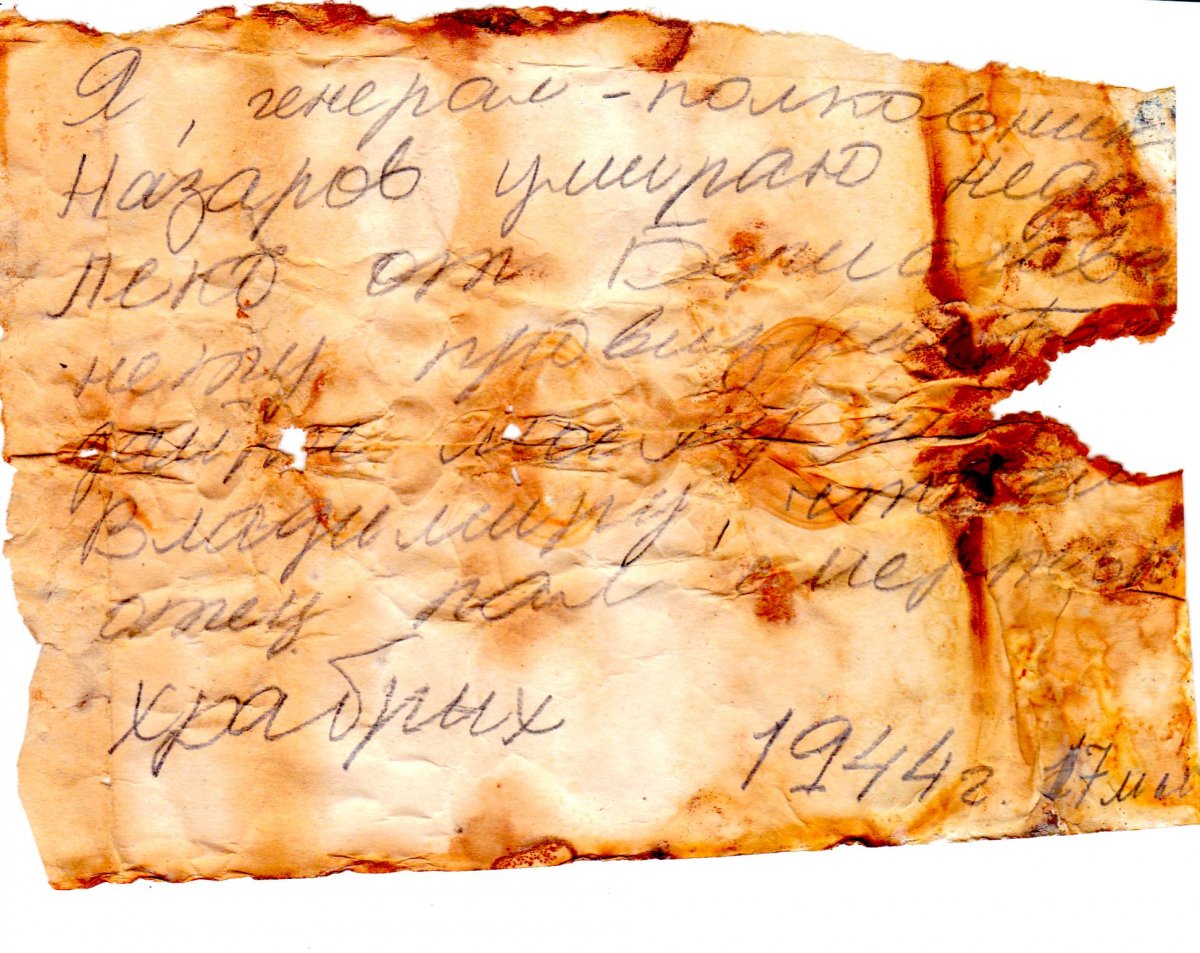 Я, генерал-полковник
Назаров умираю неда
леко от
нету провизии
Владимиру, что
отец пал смертью
храбрых
1944г. 17 мая